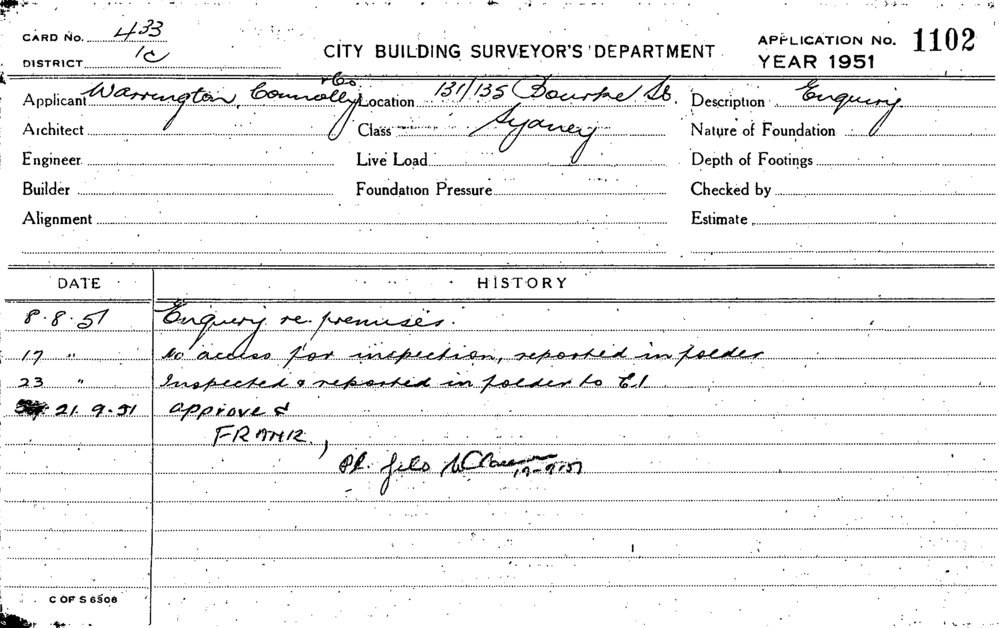 CARD No. 433
DISTRICT 1C
CITY BUILDING SURVEYOR'S DEPARTMENT
APPLICATION No. 1102
YEAR 1951
Applicant Warrington, Connolly & Co Location 131/135 Bourke St. Description Enquiry
Architect Class Sydney Nature of Foundation
Engineer Live Load Depth of Footings
Builder Foundation Pressure Checked by
Alignment Estimate
DATE HISTORY
8.8.51 Enquiry re. premises.
17 " No access for inspection, reported in folder
23 " Inspected & reported in folder to C.I.
21.9.51 approved
Pl. file
C OF S 6508